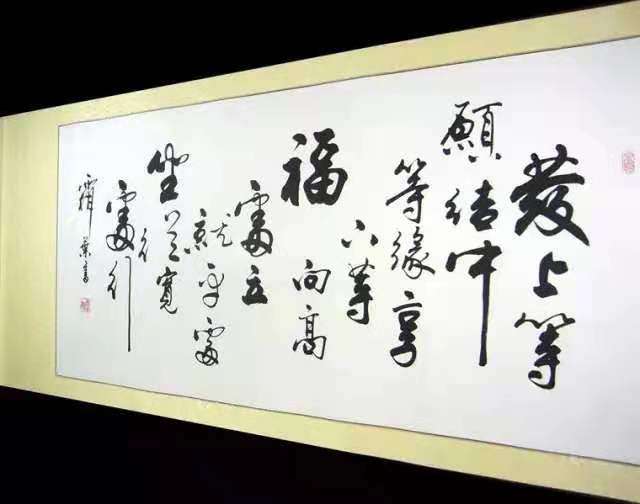 發上等
願结中
等緣享
下等
福向高
處立
就平處
坐從寬
處行